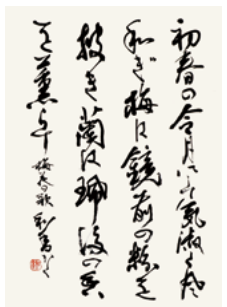 初春の令月にして氣淑く風
和ぎ梅は鏡前の粉を
披き蘭は珮後の香
を薫らす 梅春歌